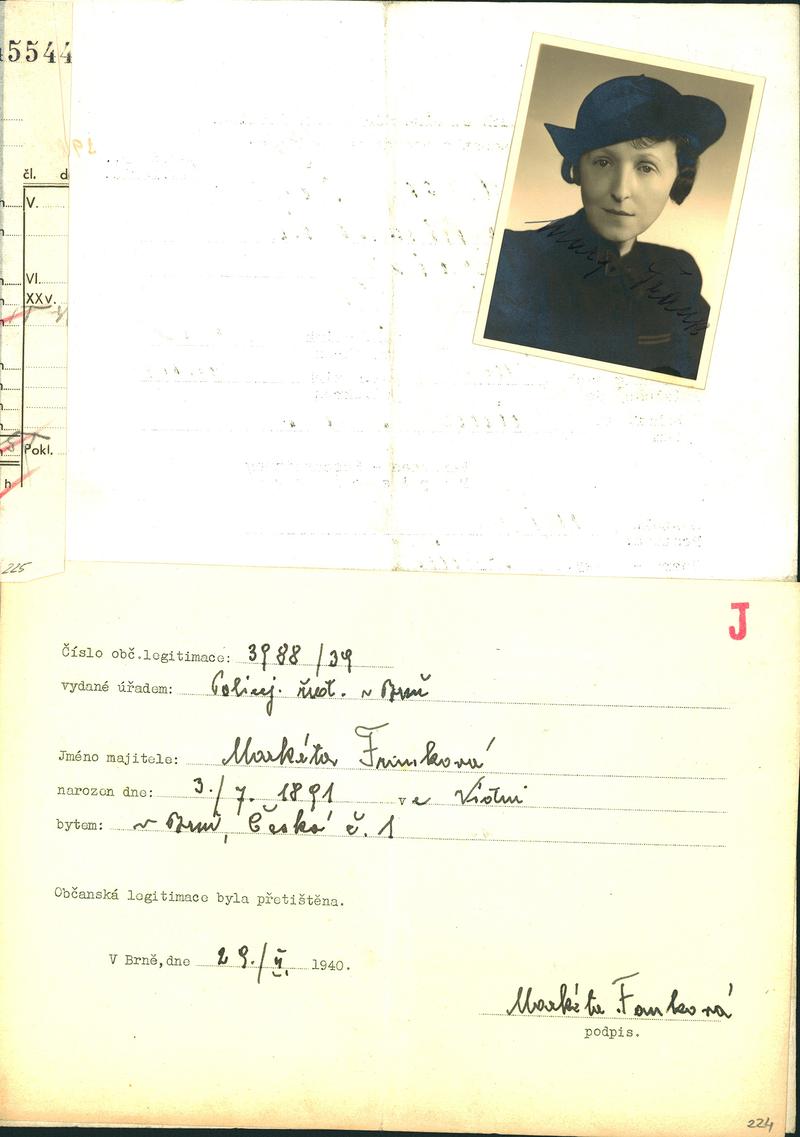 5544
čl.
V.
VI.
XXv.
Pokl.
h
225
J
Číslo obč.legitimace: 3988/39
vydané úřadem: Policej. řed. v Brně
Jméno majitele: Markéta
narozen dne: 3./7. 1891 ve Vídni
bytem: v Brně, Česká č. 1
Občanská legitimace byla přetištěna.
V Brně, dne 29./II. 1940.
Markéta
podpis.
224